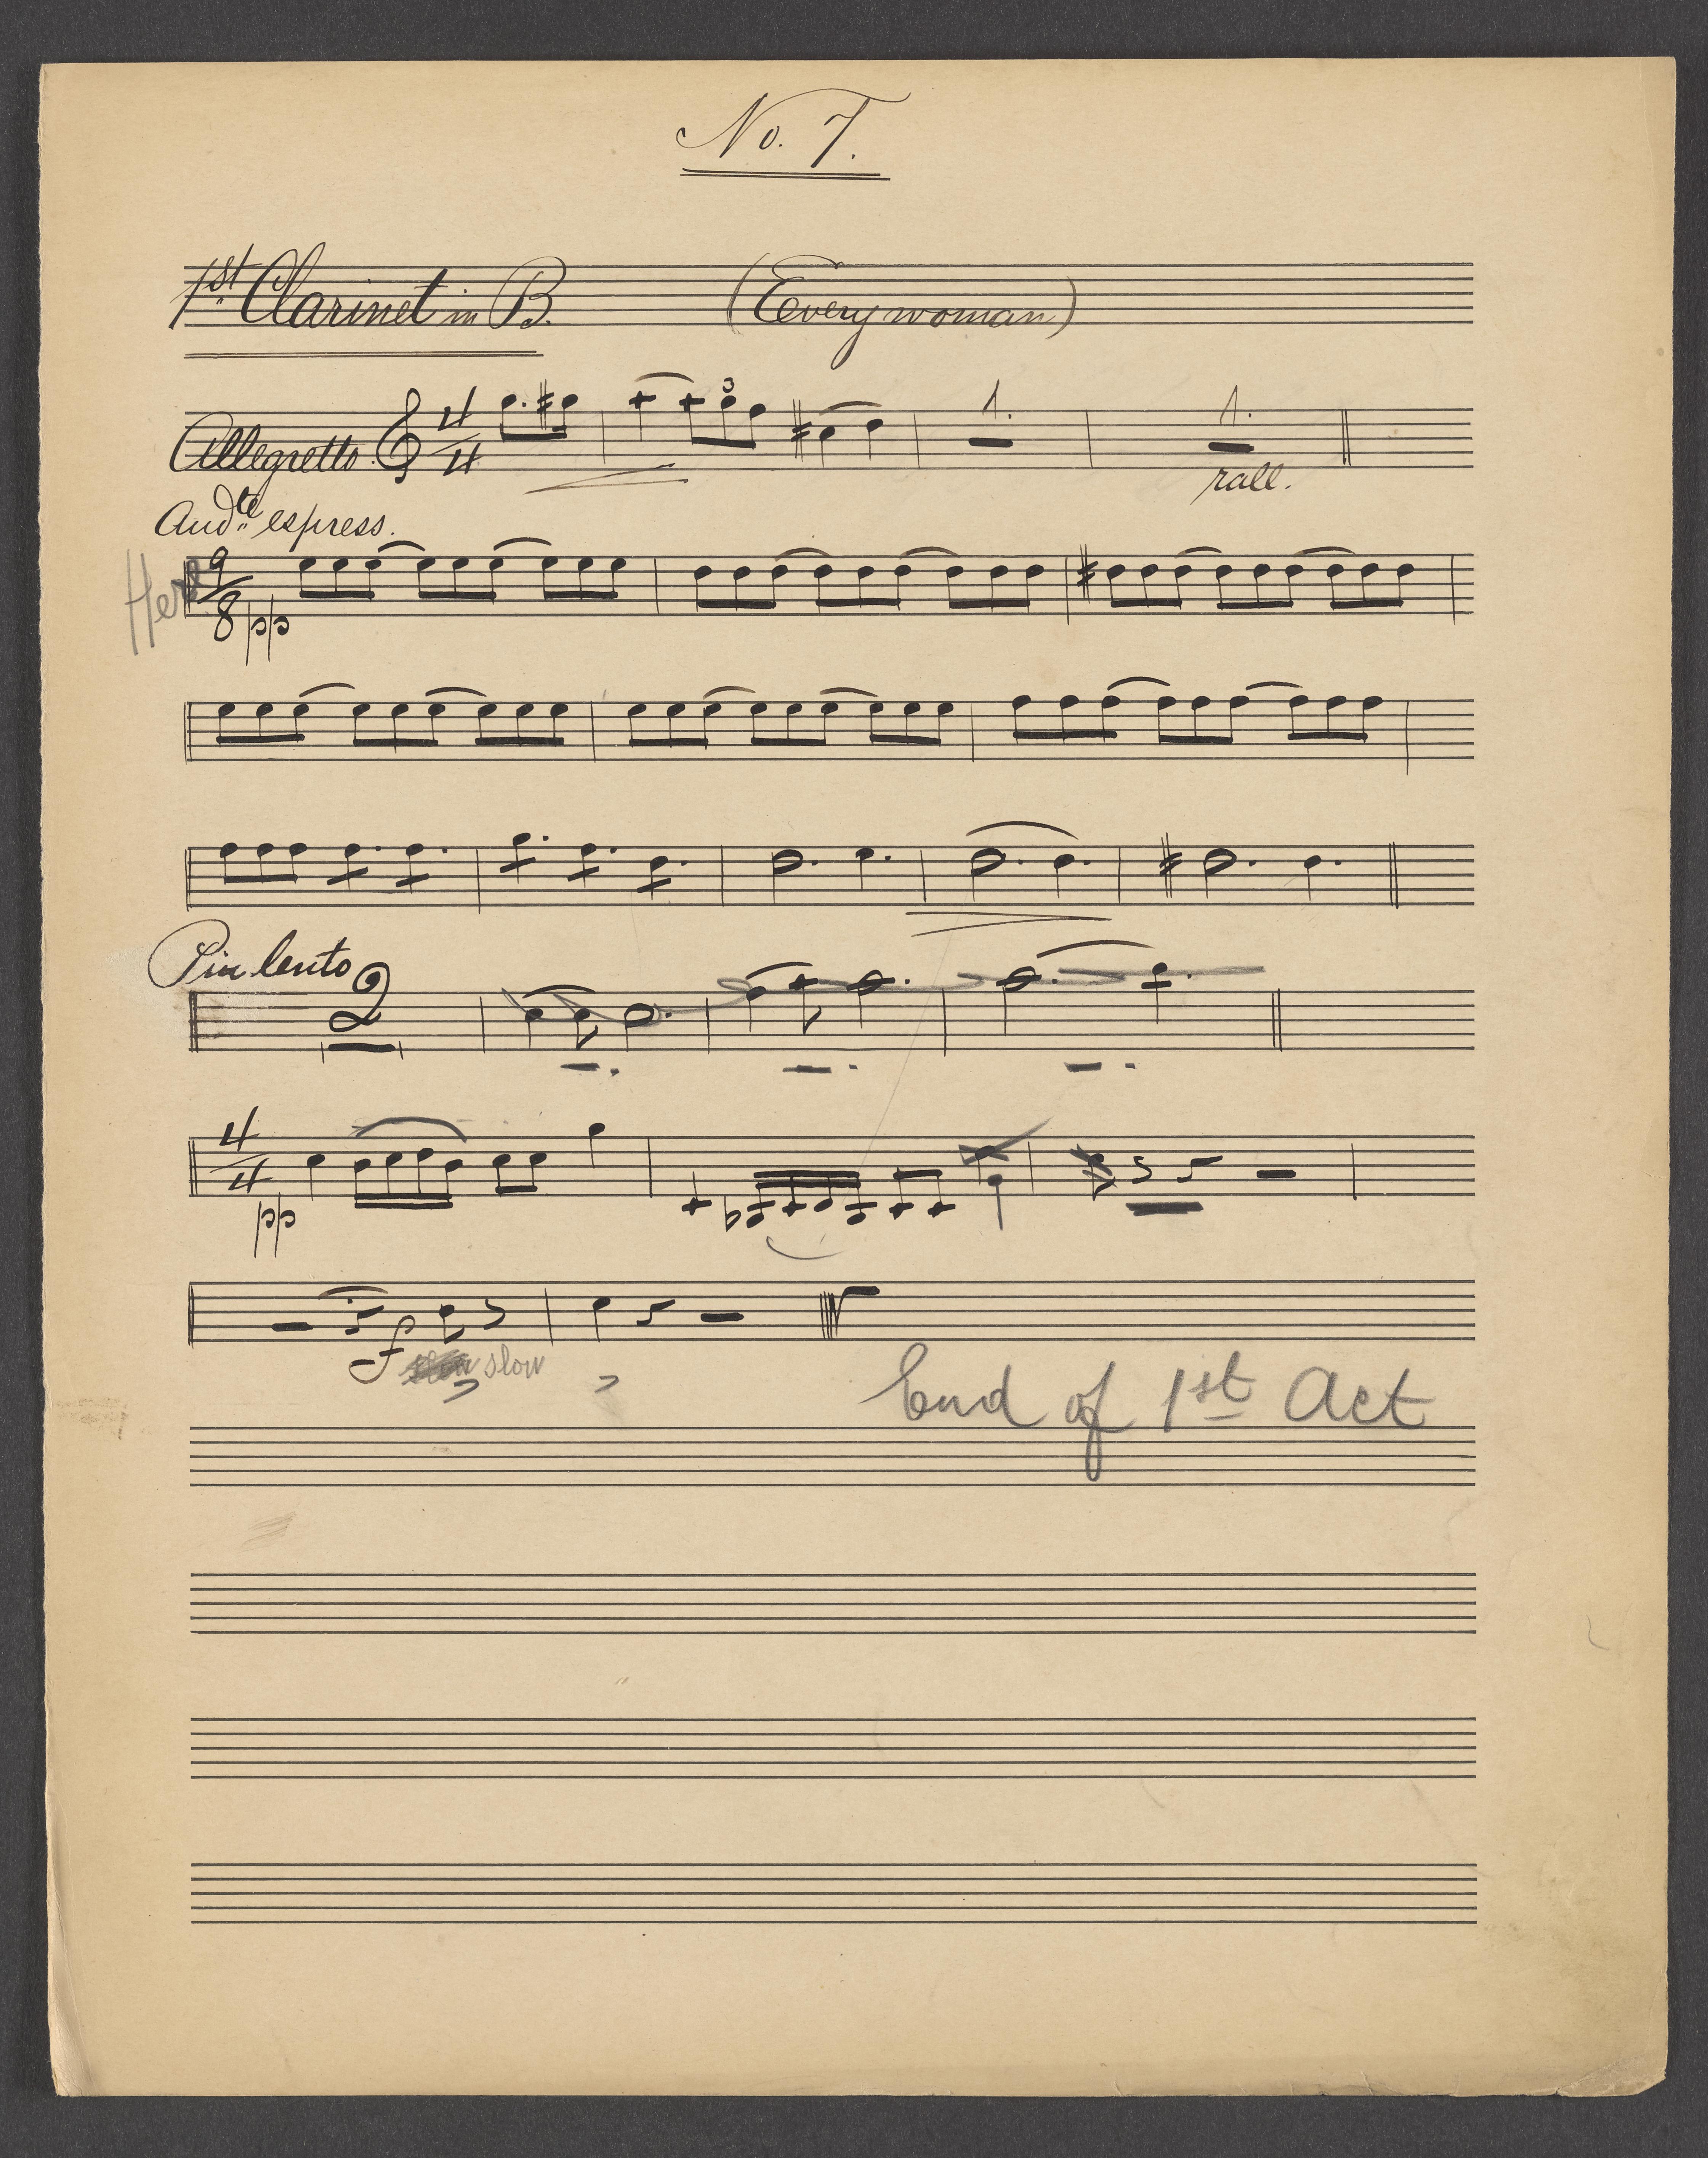 No. 7.
1st. Clarinet in B. (Everywoman)
Allegretto. 4/4 3 1. 1.
rall.
Andte. espress.
Here 9/8 pp
Piu lento 2
4/4 pp
f slow
End of 1st Act